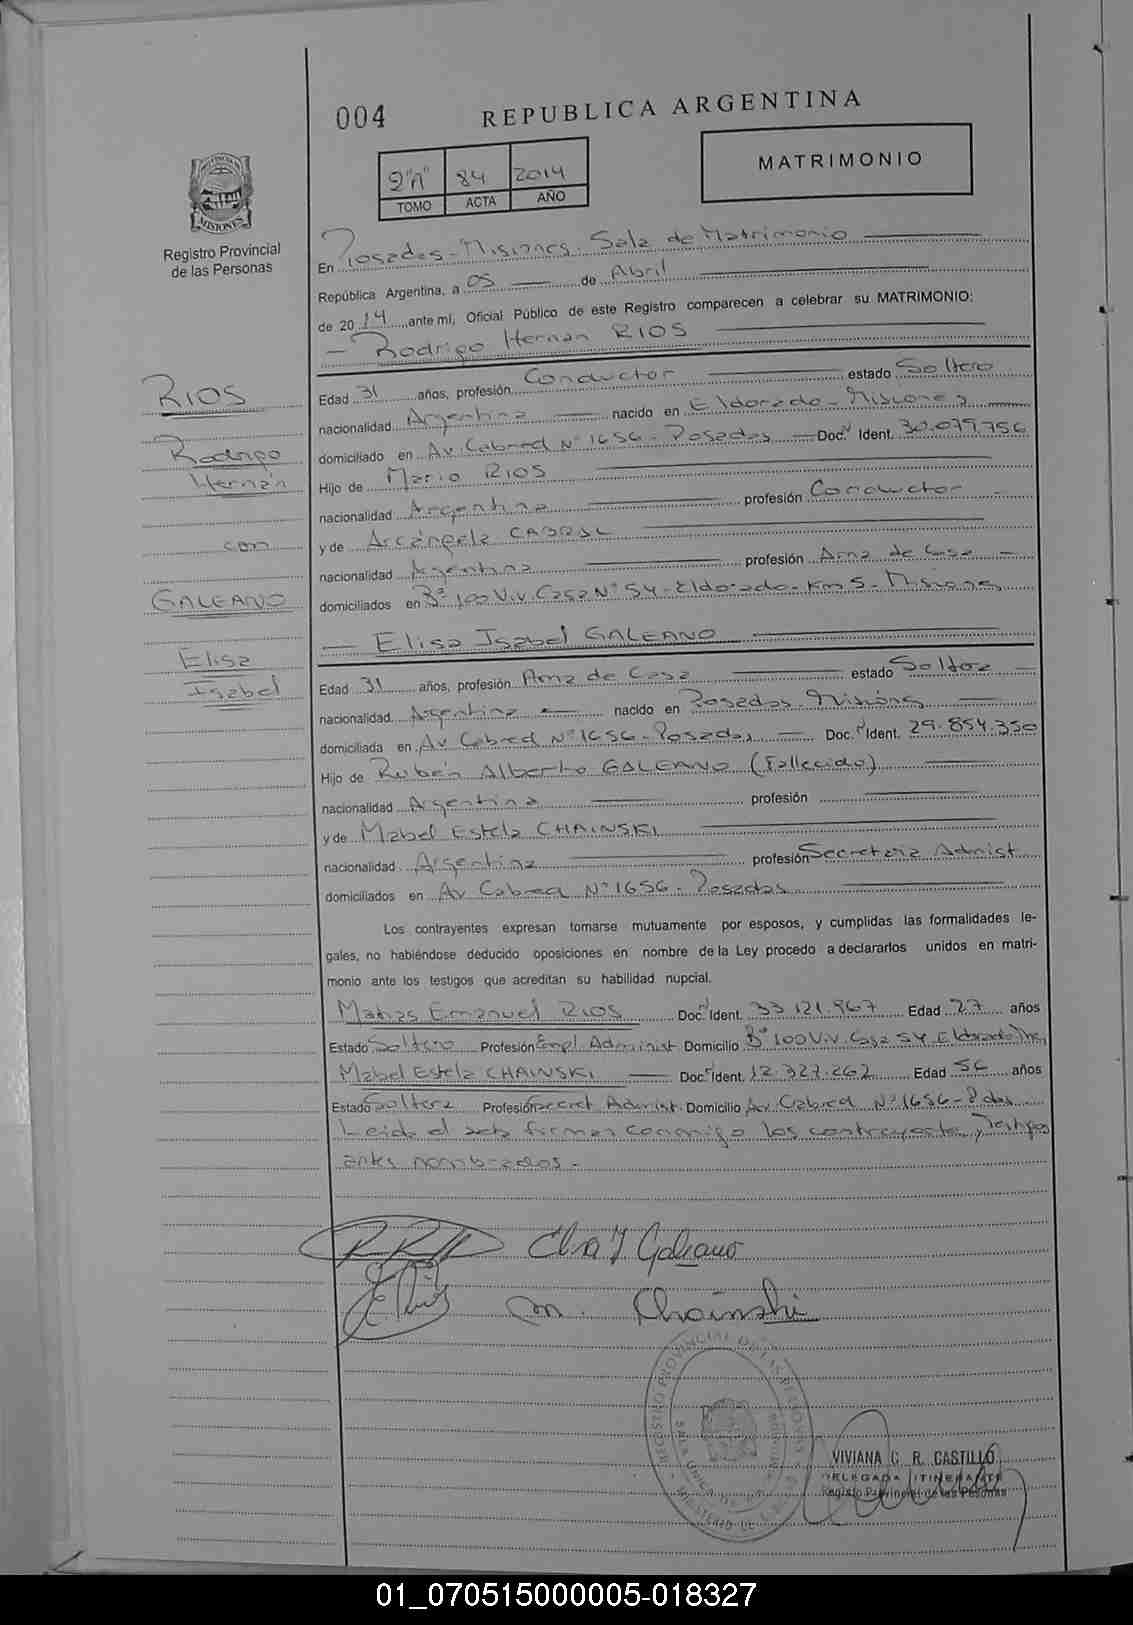 004
REPUBLICA ARGENTINA
MATRIMONIO
84 2014
TOMO ACTA AÑO
MISIONES
Registro Provincial
de las Personas
En Posadas - Misiones. Sala de Matrimonio
República Argentina, a 05 de Abril
de 2014, ante mí, Oficial Público de este Registro comparecen a celebrar su MATRIMONIO:
— Rodrigo Hernan RIOS
RIOS
Rodrigo
Hernán
con
GALEANO
Elisa
Isabel
Edad 31 años, profesión Conductor estado Soltero
nacionalidad Argentina nacido en Eldorado - Misiones
domiciliado en Av. Cabred N° 1656 - Posadas — Doc. N Ident. 30.079.756
Hijo de Mario RIOS
nacionalidad Argentina profesión Conductor
y de Arcángela CABRAL
nacionalidad Argentina profesión Ama de Casa
domiciliados en B° 100 Viv. Casa N° 54 - Eldorado - Km 5 - Misiones
— Elisa Isabel GALEANO
Edad 31 años, profesión Ama de Casa estado Soltera
nacionalidad Argentina nacido en Posadas. Misiones
domiciliada en Av Cabred N° 1656 - Posadas — Doc. N Ident. 29.854.350
Hijo de Rubén Alberto GALEANO (Fallecido)
nacionalidad Argentina profesión
y de Mabel Estela CHAINSKI
nacionalidad Argentina profesión Secretaria Administ.
domiciliados en Av Cabred N° 1656 - Posadas
Los contrayentes expresan tomarse mutuamente por esposos, y cumplidas las formalidades le-
gales, no habiéndose deducido oposiciones en nombre de la Ley procedo a declararlos unidos en matri-
monio ante los testigos que acreditan su habilidad nupcial.
Matias Emanuel RIOS Doc. N Ident. 33.121.967 Edad 27 años
Estado Soltero Profesión Empl. Administ Domicilio B° 100 Viv. Casa 54 Eldorado
Mabel Estela CHAINSKI Doc. N Ident. 12.327.262 Edad 56 años
Estado Soltera Profesión Secret Administ. Domicilio Av Cabred N° 1656 - Pdas
Leida el acta firman conmigo los contrayentes y Testigos
antes nombrados.-
Elisa I Galeano
M. Chainski
REGISTRO PROVINCIAL DE LAS PERSONAS
VIVIANA C. R. CASTILLO
DELEGADA ITINERANTE
Registro Provincial de las Personas
01_070515000005-018327